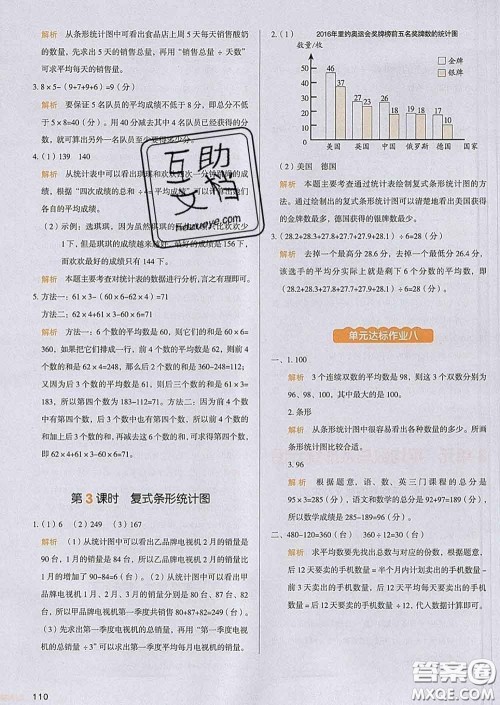 解析 从条形统计图中可看出食品店上周5天每天销售酸奶
的数量，先求出5天的销售总量，再用“销售总量÷天数”
可求平均每天的销售量。
3. 8×5-(9+7+9+6)=9(分)
解析 要保证5名队员的平均成绩不低于8分，即总成绩不
低于5×8=40(分)，用40分减去其中4名队员已经获得的
分数，就能求出另外1名队员至少要得多少分。
4.(1)139 140
解析 从统计表中可以看出琪琪和欢欢四
绩，根据“四次成绩的总和÷
各自的平均成绩。
(2)示例：选琪琪，因为虽然琪琪
但是琪琪的成绩越来越 是156下，
而欢欢最好的成绩只有144下。
解析 本题主要考查对统计表的数据进行分析，言之有理即可。
5. 方法一：61×3-(60×6-62×4)=71
方法二：62×4+61×3-60×6=71
解析 方法一：6个数的平均数是60，则它们的和是60×6=
360。如果把这6个数排成一行，前4个数的平均数是62，则
前4个数的和是62×4=248，那么后2个数的和是360-248=112。
又因为后3个数的平均数是61，则后3个数的和是61×3=
183，所以第4个数是183-112=71。方法二：因为前4个数
中有第四个数，后3个数中也有第四个数，所以前4个数的
和加上后3个数的和，再减去6个数的和，所得结果就是第
四个数，即62×4+61×3-60×6=71。
第3课时 复式条形统计图
1.(1)6 (2)249 (3)167
解析 (1)从统计图中可以看出乙品牌电视机2月的销量是
90台，1月的销量是84台，所以乙品牌电视机2月的销量比
1月的增加了90-84=6(台)。(2)从统计图中可以看出甲品
牌电视机1月、2月、3月的销量分别是80台、87台、82
台，所以甲品牌电视机第一季度共销售80+87+82=249(台)。
(3)先求出第一季度电视机的总销量，再用“第一季度的
总销量÷3”可以求出第一季度平均每月电视机的销量。
110
2.(1) 2016年里约奥运会奖牌榜前五名奖牌数的统计图
数量/枚
金牌
银牌
46 37 27 23 26 18 19 18 17 10
50
40
30
20
10
0
美国 英国 中国 俄罗斯 德国 国家
(2)美国 德国
解析 本题主要考查通过统计表绘制复式条形统计图的方
法，通过绘制出的复式条形统计图可以清楚地看出美国获得
的金牌最多，德国获得的银牌最少。
3.(28.2+28.3+27.9+27.8+28.1+27.7)÷6=28(分)
解析 去掉一个最高分28.6分，去掉一个最低分26.4分，
该选手的平均分实际上就是剩余6个分数的平均数，即
(28.2+28.3+27.9+27.8+28.1+27.7)÷6=28(分)。
单元达标作业八
一、1. 100
解析 3个连续双数的平均数是98，则这三个双数分别是
96，98，100，所以最大的是100。
2. 条形
解析 从条形统计图中很容易看出各种数量的多少。所以
条形统计图比较合适。
3. 96
解析 根据题意，语、数、英三门课程的总分是
95×3=285(分)，根据语文和数学的平均成绩是94.5分，
可知语文和数学的总分是94.5×2=189(分)，所以英语
的成绩是285-189=96(分)。
二、
解析 求平均数要先找出总数与对应的份数。根据题意，
后12天要卖的手机数量=计划15天内卖的手机总数量-
前3天卖出的手机数量，后12天平均每天要卖的手机数
量=后12天要卖的手机数量÷12，代入数据计算即可。
互助
文档
Hdzuoye.com
答案圈
MXQE.COM